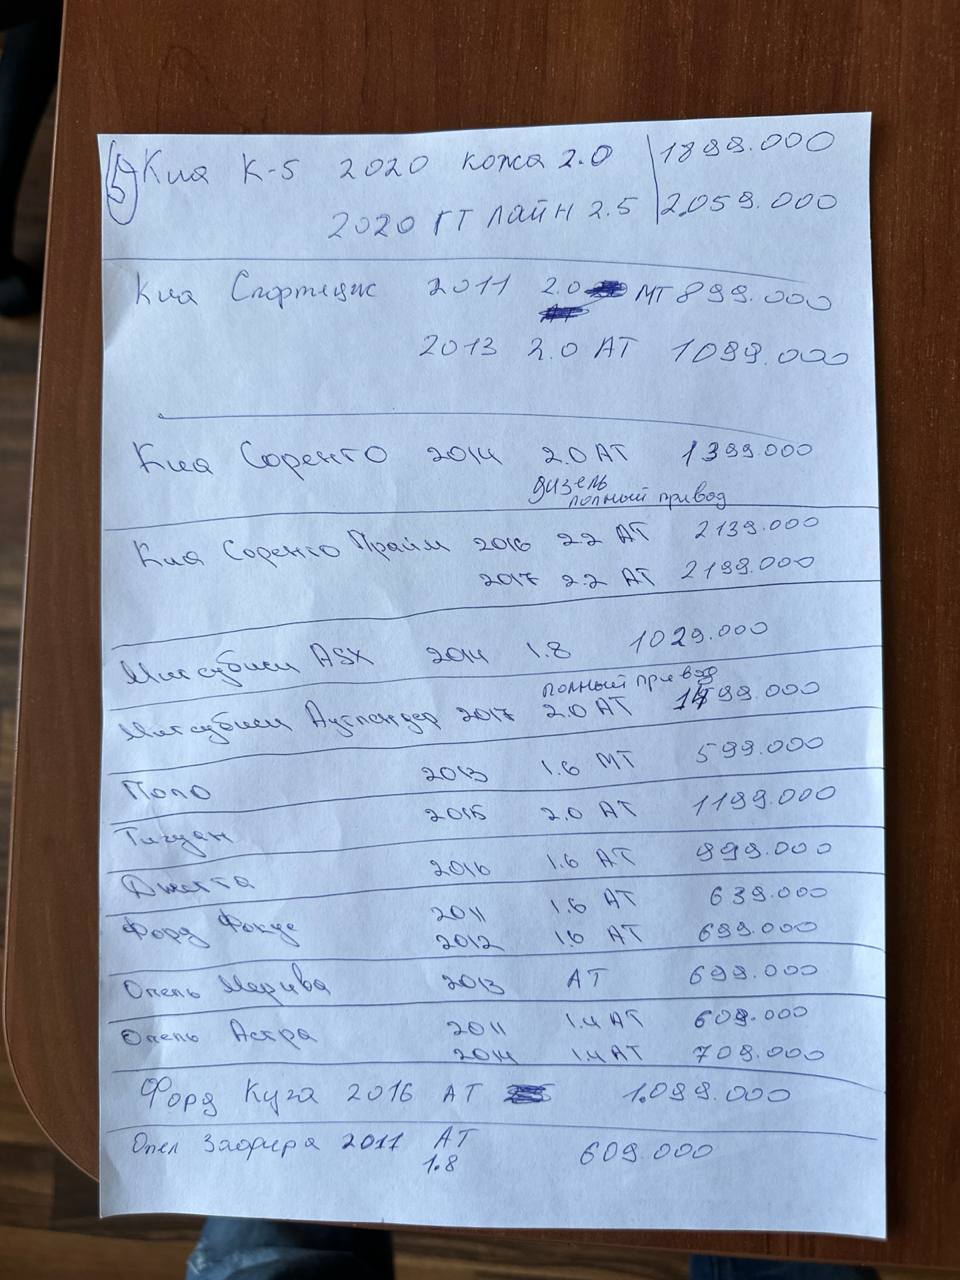 5 Киа К-5 2020 кожа 2.0 1899.000
2020 ГТ лайн 2.5 2.059.000
Киа Спортейдж 2011 2.0 МТ 899.000
2013 2.0 АТ 1099.000
Киа Соренто 2014 2.0 АТ 1399.000
дизель
полный привод
Киа Соренто Прайм 2016 2.2 АТ 2139.000
2017 2.2 АТ 2199.000
Митсубиси ASX 2014 1.8 1029.000
полный привод
Митсубиси Аутлендер 2017 2.0 АТ 1499.000
Поло 2013 1.6 МТ 599.000
Тигуан 2015 2.0 АТ 1199.000
Джетта 2016 1.6 АТ 999.000
Форд Фокус 2011 1.6 АТ 639.000
2012 1.6 АТ 699.000
Опель Мерива 2013 АТ 699.000
Опель Астра 2011 1.4 АТ 609.000
2014 1.4 АТ 709.000
Форд Куга 2016 АТ 1.099.000
Опел Зафира 2011 АТ 609.000
1.8